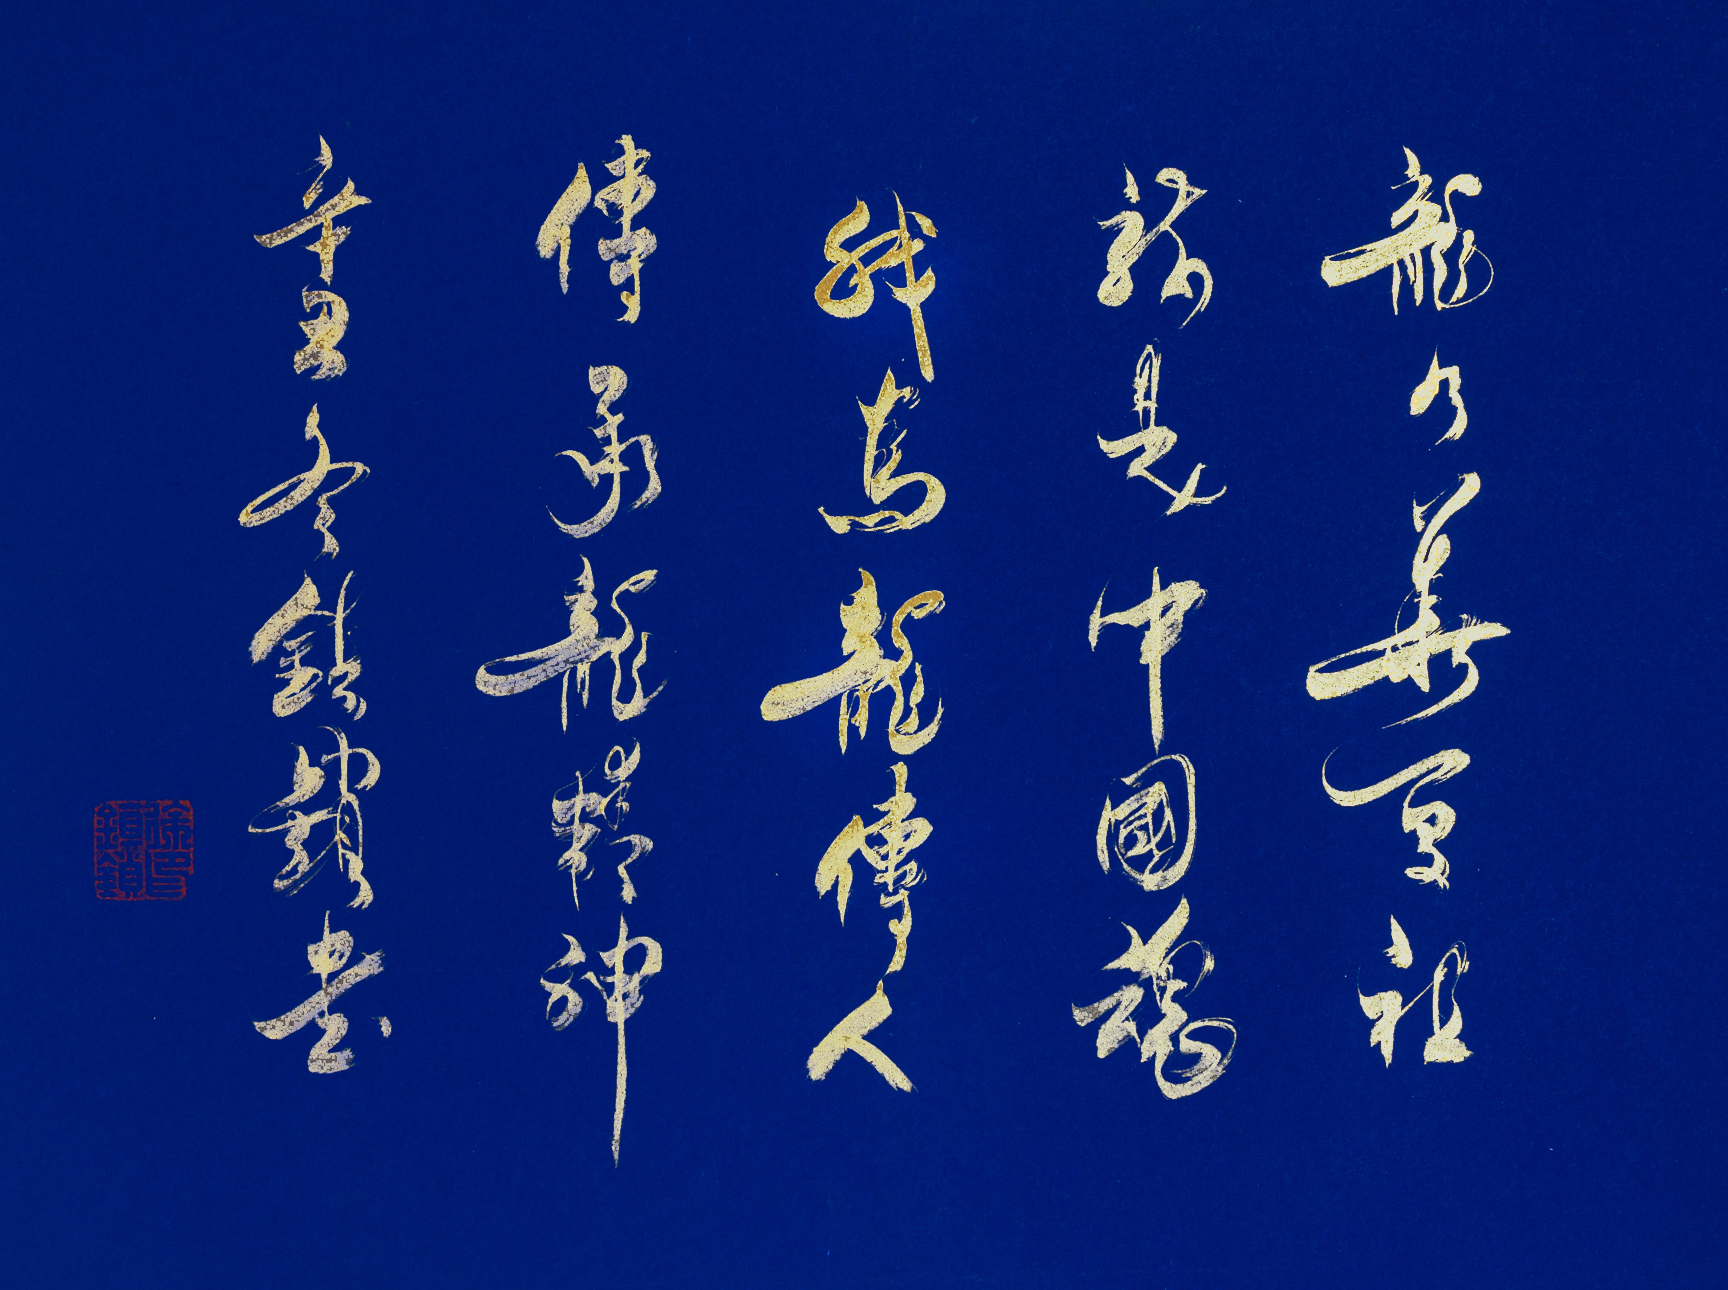 龍乃華夏祖
龍是中國魂
我為龍傳人
傳承龍精神
辛丑冬書